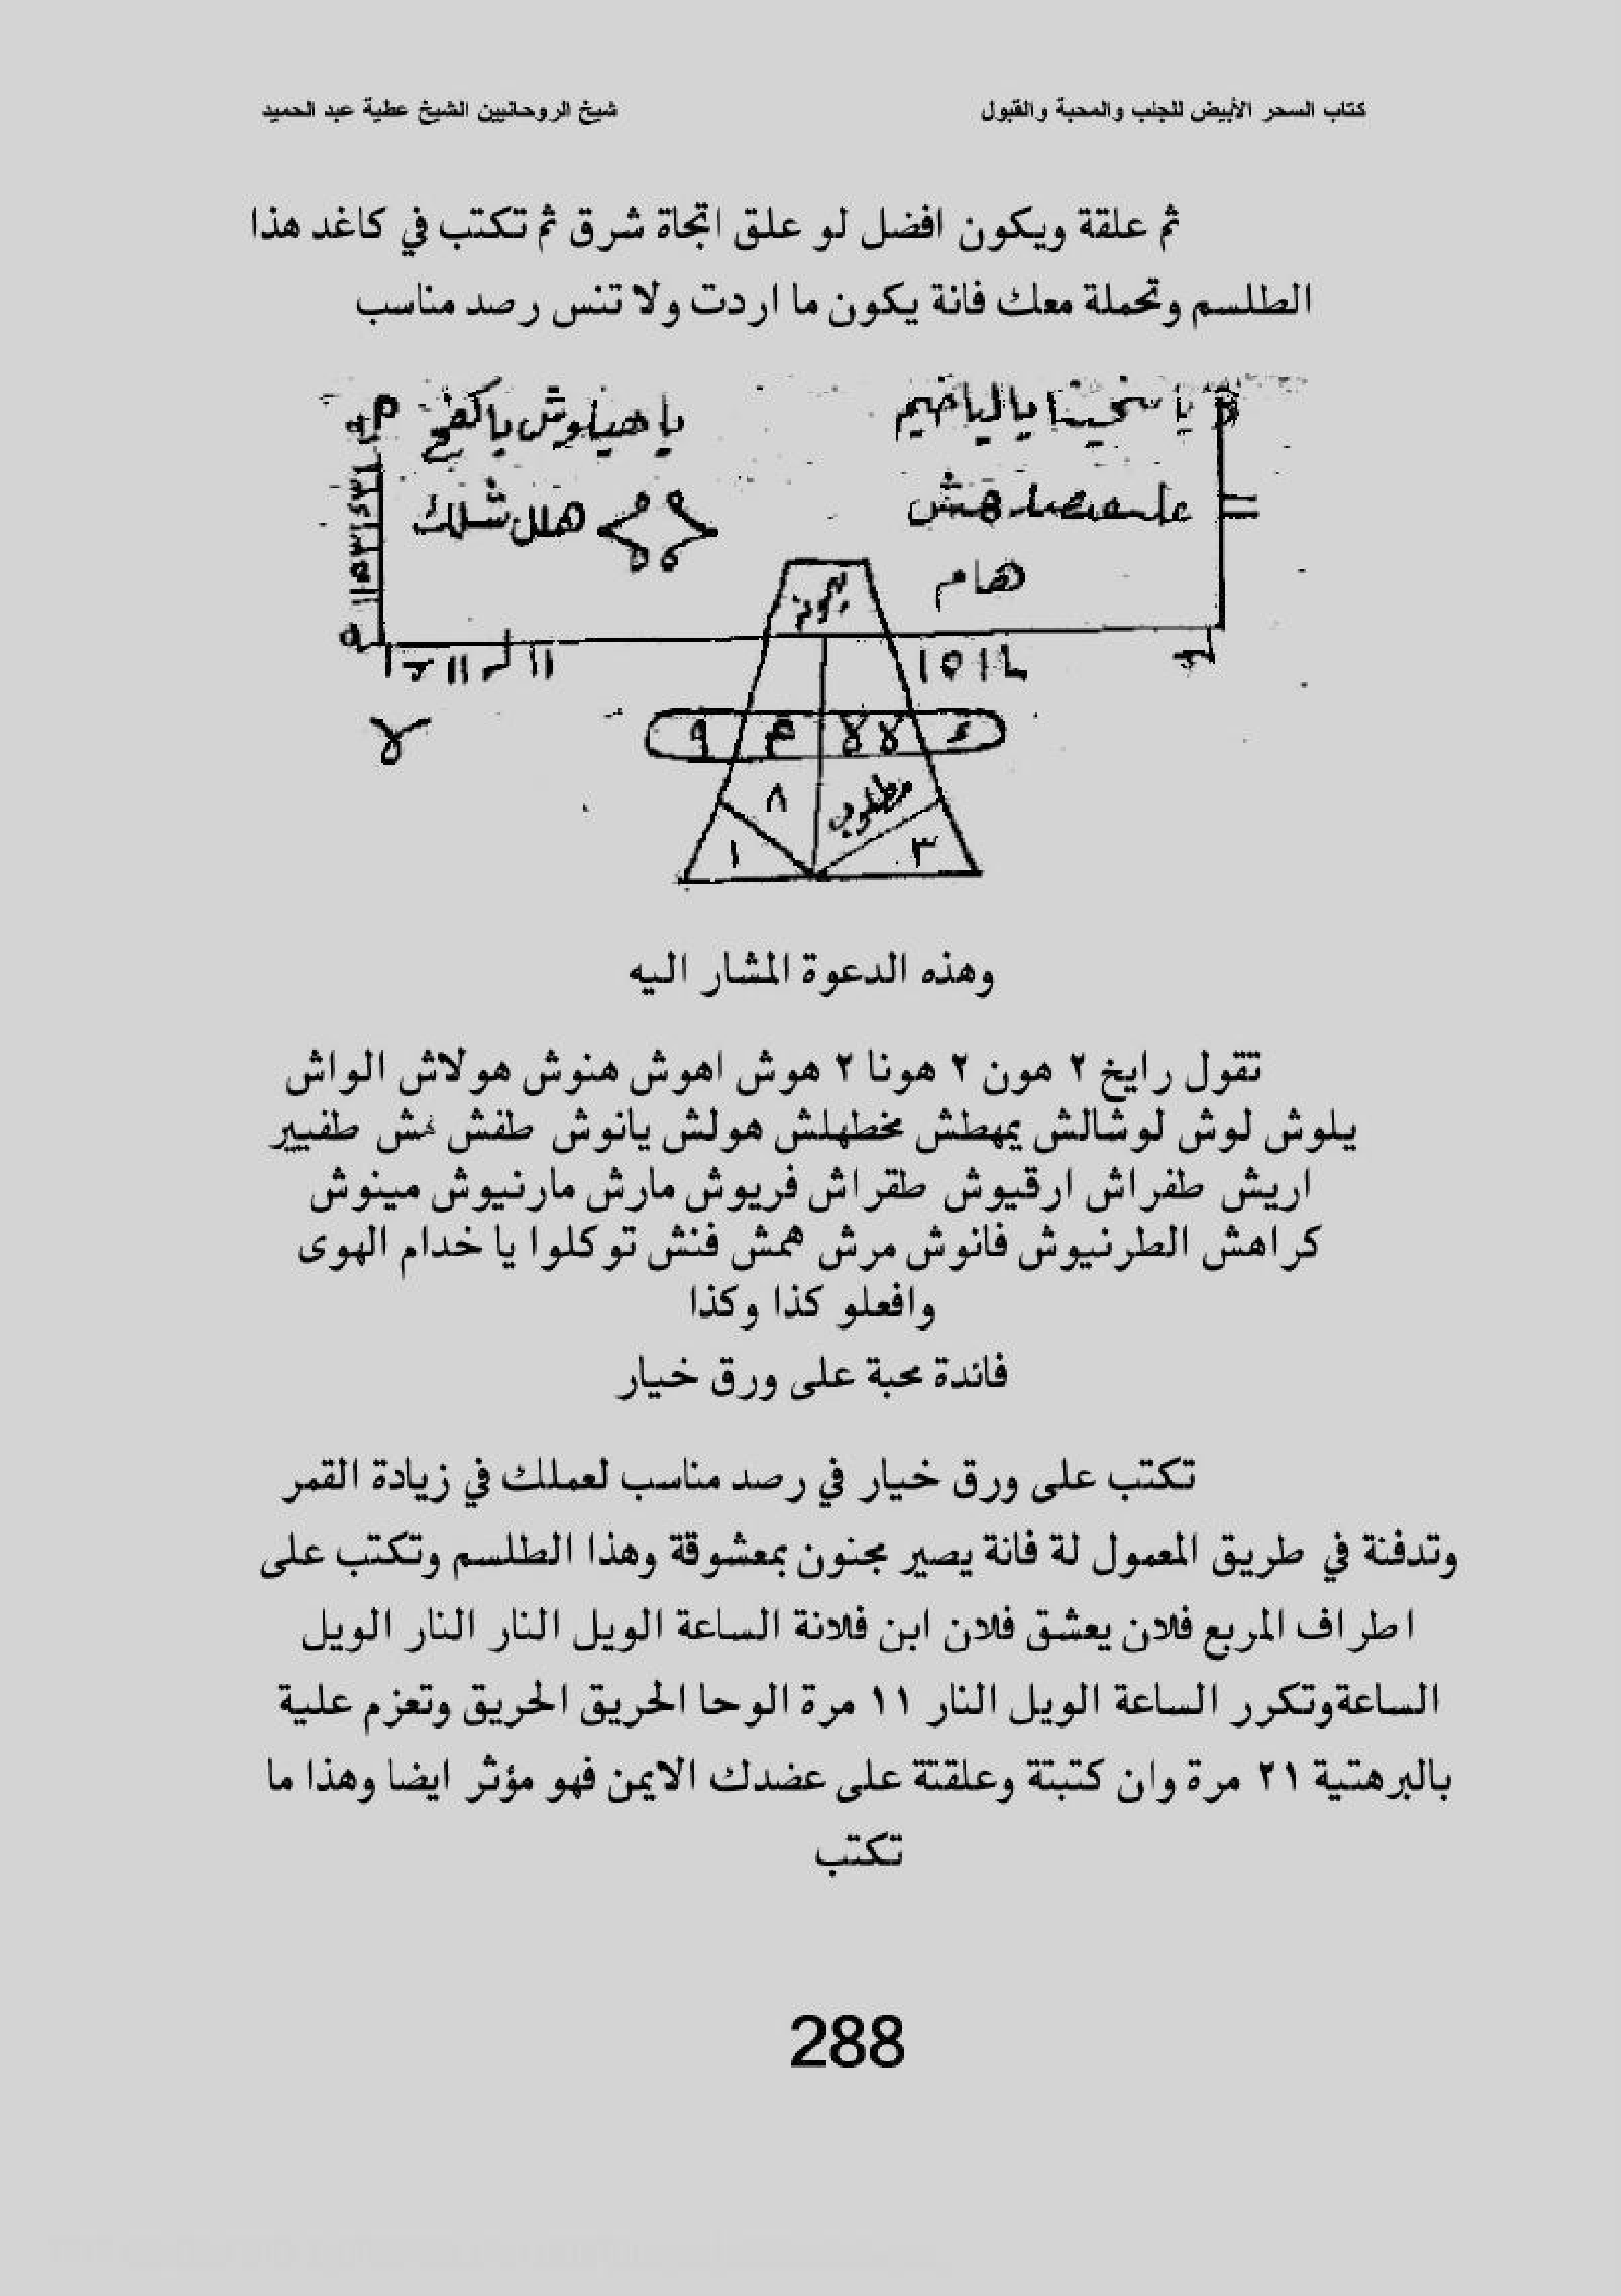 كتاب السحر الأبيض للجلب والمحبة والقبول
شيخ الروحانيين الشيخ عطية عبد الحميد
ثم علقة ويكون افضل لو علق اتجاة شرق ثم تكتب في كاغد هذا
الطلسم وتحملة معك فانة يكون ما اردت ولا تنس رصد مناسب
يا هيلوش يا
هلل شلك
هام
١٥١
٨
مطلوب
١
٣
وهذه الدعوة المشار اليه
تقول رايخ ٢ هون ٢ هونا ٢ هوش اهوش هنوش هولاش الواش
يلوش لوش لوشالش يمهطش مخطهلش هولش يانوش طفش همش طفيير
اريش طفراش ارقيوش طقراش فريوش مارش مارنيوش مينوش
كراهش الطرنيوش فانوش مرش همش فنش توكلوا يا خدام الهوى
وافعلو كذا وكذا
فائدة محبة على ورق خيار
تكتب على ورق خيار في رصد مناسب لعملك في زيادة القمر
وتدفنة في طريق المعمول لة فانة يصير مجنون بمعشوقة وهذا الطلسم وتكتب على
اطراف المربع فلان يعشق فلان ابن فلانة الساعة الويل النار النار الويل
الساعةوتكرر الساعة الويل النار ١١ مرة الوحا الحريق الحريق وتعزم علية
بالبرهتية ٢١ مرة وان كتبتة وعلقتة على عضدك الايمن فهو مؤثر ايضا وهذا ما
تكتب
288